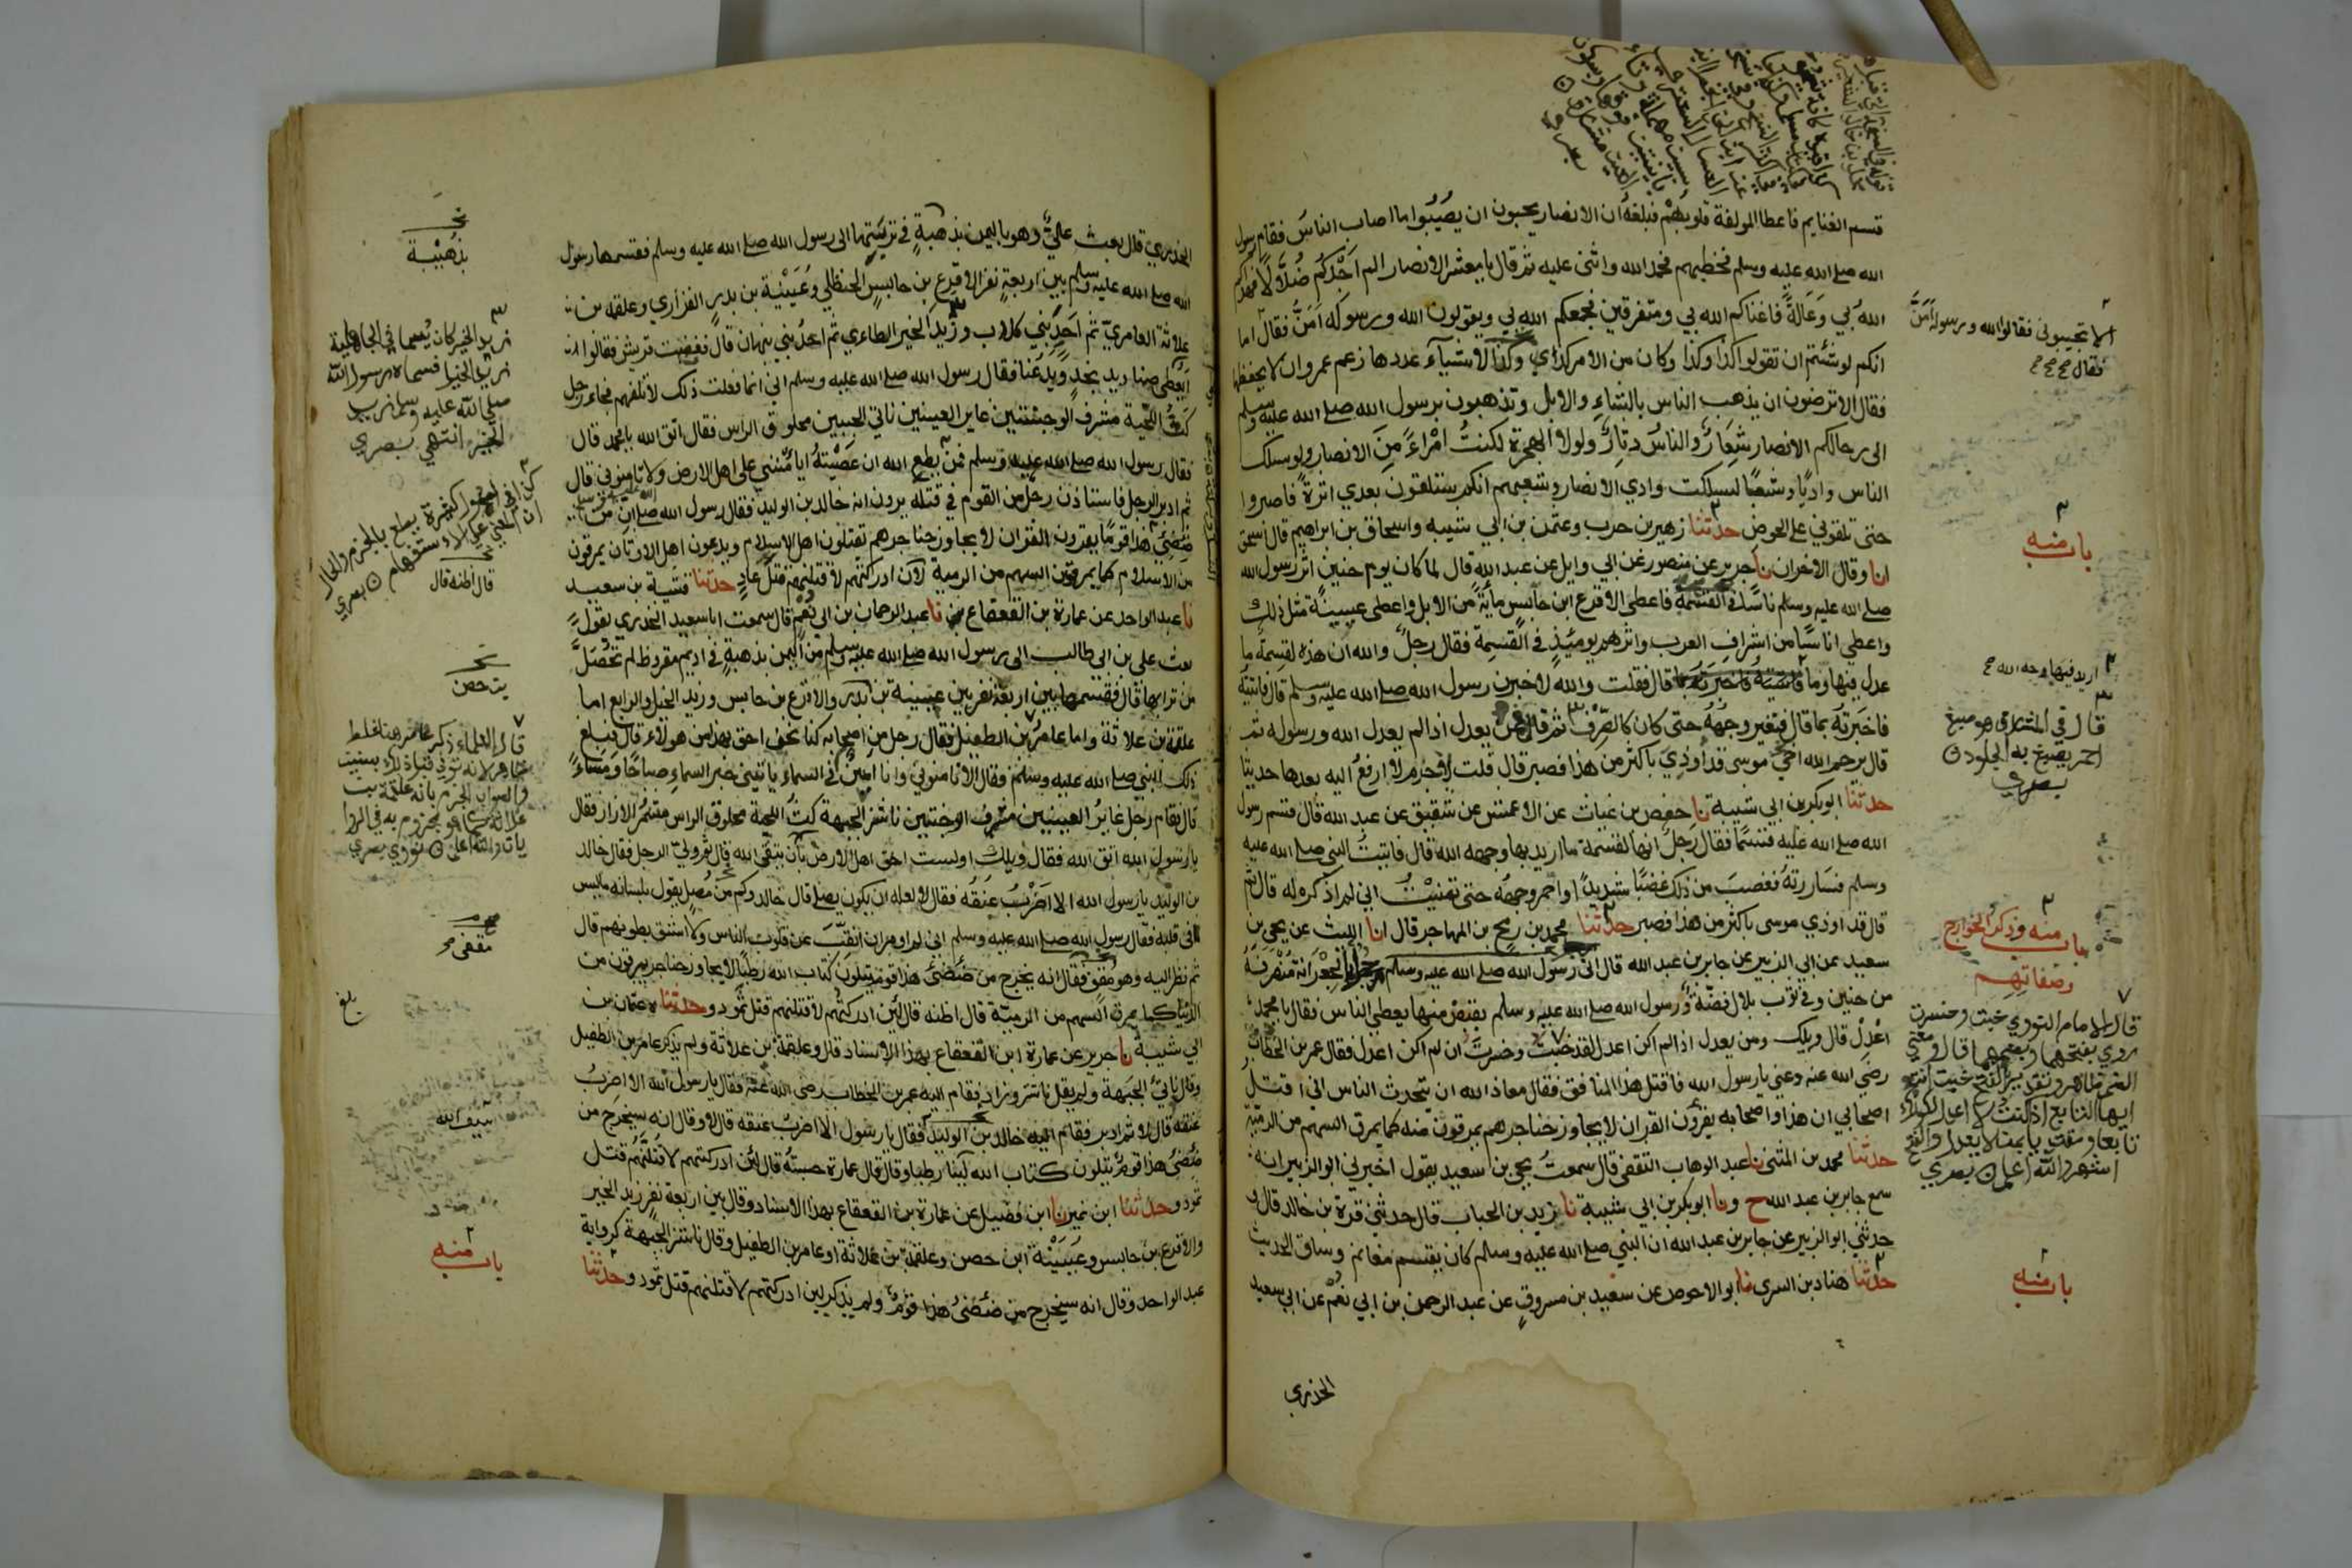 قسم الغنايم فاعطا المولفة قلوبهم فبلغه ان الانصار يحبون ان يصيبوا ما اصاب الناس فقام رسول
الله صلي الله عليه وسلم فخطبهم فحمد الله واثنى عليه ثم قال يا معشر الانصار الم اجدكم ضلالا فهداكم
الله بي وعالة فاغناكم الله بي ومتفرقين فجمعكم الله بي ويقولون الله ورسوله امن فقال اما
انكم لو شئتم ان تقولوا كذا وكذا وكان من الامر كذا وكذا لاشياء عددها زعم عمرو ان لا يحفظها
فقال الا ترضون ان يذهب الناس بالشاء والابل وتذهبون برسول الله صلي الله عليه وسلم
الى رحالكم الانصار شعار والناس دثار ولولا الهجرة لكنت امراء من الانصار ولو سلك
الناس واديا وشعبا لسلكت وادي الانصار وشعبهم انكم ستلقون بعدي اثرة فاصبروا
حتى تلقوني على الحوض حدثنا زهير بن حرب وعثمن بن ابي شيبه واسحاق بن ابراهيم قال اسحق
انا وقال الاخران نا جرير عن منصور عن ابي وايل عن عبد الله قال لما كان يوم حنين اثر رسول الله
صلي الله عليه وسلم ناسا في القسمة فاعطى الاقرع ابن حابس مأية من الابل واعطى عيينة مثل ذلك
واعطي اناسا من اشراف العرب واثرهم يوميذ في القسمة فقال رجل والله ان هذه لقسمة ما
عدل فيها وما قال فقلت والله لاخبرن رسول الله صلي الله عليه وسلم قال فاتيته
فاخبرته بما قال فتغير وجهه حتى كان كالصرف ثم قال فمن يعدل اذا لم يعدل الله ورسوله ثم
قال يرحم الله اخي موسى قد اوذي باكثر من هذا فصبر قال قلت لاجرم لا ارفع اليه بعدها حديثا
حدثنا ابو بكر بن ابي شيبة نا حفص بن غياث عن الاعمش عن شقيق عن عبد الله قال قسم رسول
الله صلي الله عليه قسما فقال رجل انها لقسمة ما اريد بها وجهه الله قال فاتيت النبي صلي الله عليه
وسلم فساررته فغضب من ذلك غضبا شديدا واحمر وجهه حتى تمنيت اني لم اذكره له قال ثم
قال قد اوذي موسى باكثر من هذا فصبر حدثنا محمد بن رمح بن المهاجر قال انا الليث عن يحيى بن
سعيد عن ابي الزبير عن جابر بن عبد الله قال اتى رسول الله صلي الله عليه وسلم رجل بالجعرانة منصرفه
من حنين وفي ثوب بلال فضة ورسول الله صلي الله عليه وسلم يقبض منها يعطي الناس فقال يا محمد
اعدل قال ويلك ومن يعدل اذا لم اكن اعدل لقد خبت وخسرت ان لم اكن اعدل فقال عمر بن الخطاب
رضي الله عنه دعني يا رسول الله فاقتل هذا المنافق فقال معاذ الله ان يتحدث الناس اني اقتل
اصحابي ان هذا واصحابه يقرؤن القران لا يجاوز حناجرهم يمرقون منه كما يمرق السهم من الرمية
حدثنا محمد بن المثنى نا عبد الوهاب الثقفى قال سمعت يحيى بن سعيد يقول اخبرني ابو الزبير انه
سمع جابر بن عبد الله ح ونا ابو بكر بن ابي شيبة نا زيد بن الحباب قال حدثني قرة بن خالد قال
حدثني ابو الزبير عن جابر بن عبد الله ان النبي صلي الله عليه وسلم كان يقسم مغانم وساق الحديث
حدثنا هناد بن السري نا ابو الاحوص عن سعيد بن مسروق عن عبد الرحمن بن ابي نعم عن ابي سعيد
الخدري
الا تجيبوني فقالوا الله ورسوله امن
فقال
باب منه
اريد فيها وجه الله
قال في المشارق هو صبغ
احمر يصبغ به الجلود
بصري
باب منه وذكر الخوارج
وصفاتهم
قال الامام النووي خبت وخسرت
روي بفتحهما وبضمهما قال ومعنى
الضم ظاهر وتقدير الفتح خبت انت
ايها التابع اذا كنت لا اعدل لكونك
تابعا ومقتديا بمن لا يعدل والفتح
اشهر والله اعلم بصري
باب منه
الخدري قال بعث علي وهو باليمن بذهبة في تربتها الى رسول الله صلي الله عليه وسلم فقسمها رسول
الله صلي الله عليه وسلم بين اربعة نفر الاقرع بن حابس الحنظلي وعيينة بن بدر الفزاري وعلقمه بن
علاثة العامري ثم احد بني كلاب وزيد الخير الطاءي ثم احد بني نبهان قال فغضبت قريش فقالوا
ايعطي صناديد نجد ويدعنا فقال رسول الله صلي الله عليه وسلم اني انما فعلت ذلك لاتلفهم فجاء رجل
كث اللحية مشرف الوجنتين غاير العينين ناتي الجبين محلوق الراس فقال اتق الله يا محمد قال
فقال رسول الله صلي الله عليه وسلم فمن يطع الله ان عصيته ايامنني على اهل الارض ولا تامنوني قال
ثم ادبر الرجل فاستاذن رجل من القوم في قتله يرون انه خالد بن الوليد فقال رسول الله صلي ان من
ضئضئ هذا قوما يقرون القران لا يجاوز حناجرهم يقتلون اهل الاسلام ويدعون اهل الاوثان يمرقون
من الاسلام كما يمرق السهم من الرمية لان ادركتهم لاقتلنهم قتل عاد حدثنا قتيبة بن سعيد
نا عبد الواحد عن عمارة بن القعقاع نا عبد الرحمان بن ابي نعم قال سمعت ابا سعيد الخدري يقول
بعث علي بن ابي طالب الى رسول الله صلي الله عليه وسلم من اليمن بذهبة في اديم مقروظ لم تحصل
من ترابها قال فقسمها بين اربعة نفر بين عيينة بن بدر والاقرع بن حابس وزيد الخيل والرابع اما
علقمة بن علاثة واما عامر بن الطفيل فقال رجل من اصحابه كنا نحن احق بهذا من هولاء قال فبلغ
ذلك النبي صلي الله عليه وسلم فقال الا تامنوني وانا امين في السماء ياتيني خبر السماء صباحا ومساء
قال فقام رجل غاير العينين مشرف الوجنتين ناشز الجبهة كث اللحية محلوق الراس مشمر الازار فقال
يا رسول الله اتق الله فقال ويلك اولست احق اهل الارض بان يتقي الله قال ثم ولي الرجل فقال خالد
بن الوليد يا رسول الله الا اضرب عنقه فقال لا لعله ان يكون يصلي قال خالد وكم من مصل يقول بلسانه ما ليس
في قلبه فقال رسول الله صلي الله عليه وسلم اني لم اومر ان انقب عن قلوب الناس ولا اشق بطونهم قال
ثم نظر اليه وهو مقفي فقال انه يخرج من ضئضئ هذا قوم يتلون كتاب الله رطبا لا يجاوز حناجرهم يمرقون من
الدين كما يمرق السهم من الرمية قال اظنه قال لئن ادركتهم لاقتلنهم قتل ثمود وحدثنا عثمان بن
ابي شيبة نا جرير عن عمارة ابن القعقاع بهذا الاسناد قال وعلقمة بن علاثة ولم يذكر عامر بن الطفيل
وقال ناتئ الجبهة ولم يقل ناشز وزاد فقام اليه عمر بن الخطاب رضي الله عنه فقال يا رسول الله الا اضرب
عنقه قال لا ثم ادبر فقام اليه خالد بن الوليد فقال يا رسول الله الا اضرب عنقه قال لا وقال انه سيخرج من
ضئضئ هذا قوم يتلون كتاب الله لينا رطبا وقال قال عمارة حسبته قال لئن ادركتهم لاقتلنهم قتل
ثمود وحدثنا ابن نمير نا ابن فضيل عن عمارة بن القعقاع بهذا الاسناد وقال بين اربعة نفر زيد الخير
والاقرع بن حابس وعيينة ابن حصن وعلقمة بن علاثة او عامر بن الطفيل وقال ناشز الجبهة كرواية
عبد الواحد وقال انه سيخرج من ضئضئ هذا قوم ولم يذكر لين ادركتهم لاقتلنهم قتل ثمود وحدثنا
بذهيبة
زيد الخير كان يسما في الجاهلية
زيد الخيل فسماه رسول الله
صلي الله عليه وسلم زيد
الخير انتهي بصري
قال اظنه قال
قال العلماء ذكر عامر هنا غلط
ظاهر لانه توفي قبل هذا بسنين
والصواب الجزم بانه علقمة بن
علاثة كما هو مجزوم به في الروا
يات والله اعلم نووي بصري
مقفى
بلغ
سيف الله
باب منه